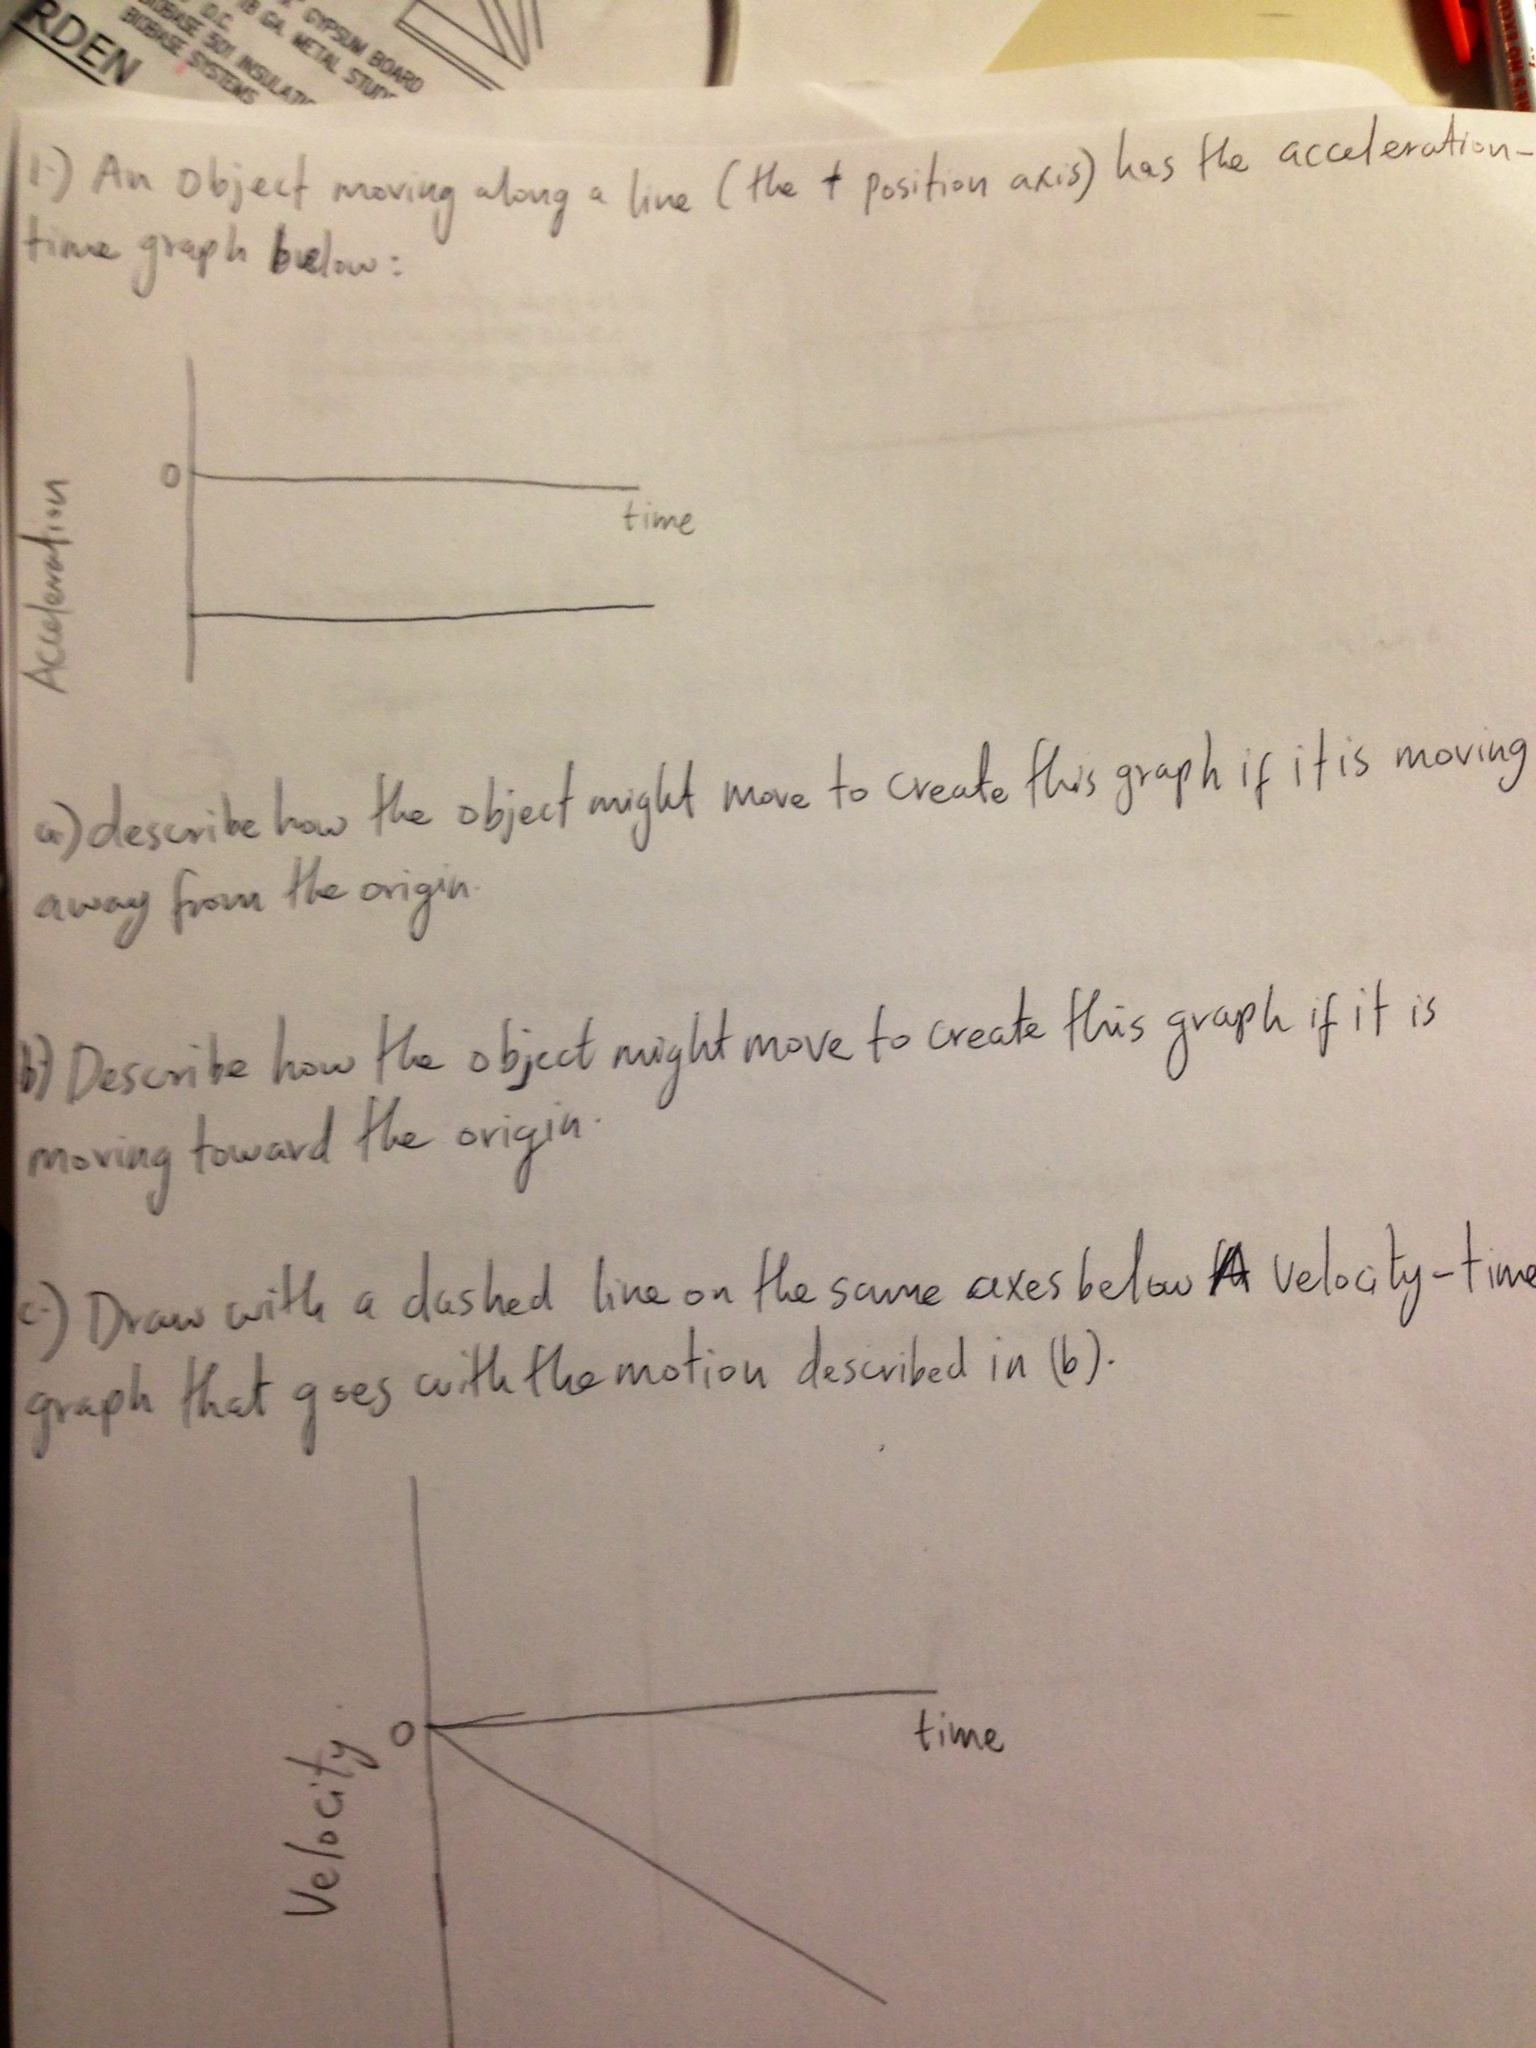 RDEN
D.C.
GYPSUM BOARD
18 GA. METAL STUD
BIOBASE 501 INSULATI
BIOBASE SYSTEMS
1.) An object moving along a line (the + position axis) has the acceleration-
time graph below:
0
time
Acceleration
a) describe how the object might move to create this graph if it is moving
away from the origin.
b) Describe how the object might move to create this graph if it is
moving toward the origin.
c.) Draw with a dashed line on the same axes below A velocity-time
graph that goes with the motion described in (b).
0
time
Velocity